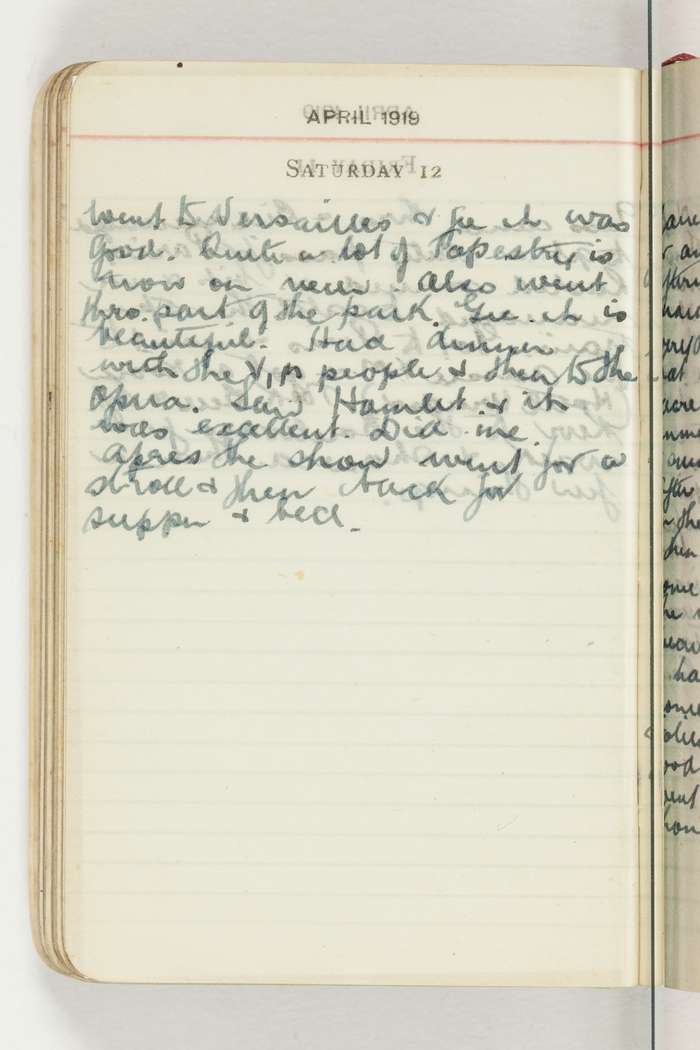 APRIL 1919
SATURDAY 12
Went to Versailles & Gee it was
good. Quite a lot of Tapestry is
now on view. Also went
thro. part of the park. Gee. it is
beautiful. Had dinner
with the people & then to the
Opera. Saw Hamlet. & it
was excellent. Did me.
Apres the show went for a
stroll & then back for
supper & bed.